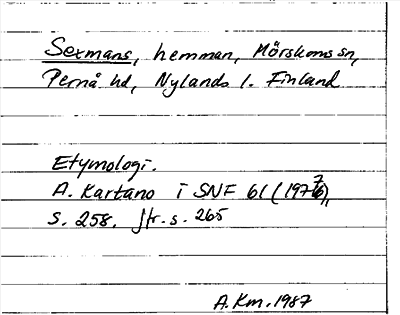 Sexmans, hemman, Mörskoms sn,
Pernå hd, Nylands l. Finland
Etymologi.
A. Kartano i SNF 61 (1976),
s. 258. Jfr. s. 265
A.Km. 1987